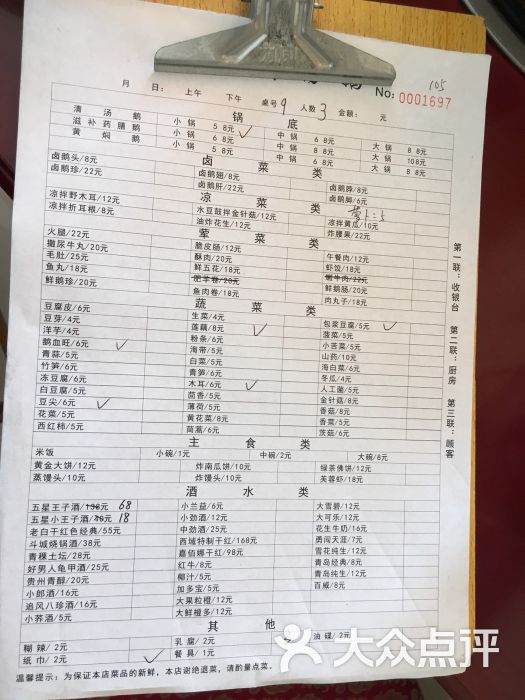 105
No: 0001697
月 日: 上午 下午 桌号 9 人数 3 金额: 元
锅 底
清汤鹅 小锅 58元 中锅 68元 大锅 88元
滋补药膳鹅 小锅 68元 中锅 88元 大锅 108元
黄焖鹅 小锅 58元 中锅 68元 大锅 88元
卤 菜 类
卤鹅头/8元 卤鹅翅/8元 卤鹅脖/8元
卤鹅珍/22元 卤鹅肝/22元 卤鹅脚/6元
凉 菜 类
凉拌野木耳/12元 水豆鼓拌金针菇/12元 凉拌黄瓜/10元
凉拌折耳根/8元 油炸花生/12元 炸腰果/22元
荤 菜 类
火腿/22元 脆皮肠/12元 午餐肉/12元
撒尿牛丸/20元 酥肉/20元 虾饺/18元
毛肚/25元 鲜五花/18元
鱼丸/18元 肥羊卷/20元 鲜鹅肠/20元
鲜鹅珍/20元 鱼肉卷/18元 肉丸子/18元
蔬 菜 类
豆腐皮/6元 生菜/4元 包浆豆腐/5元
豆芽/4元 莲藕/8元 菠菜/5元
洋芋/4元 粉条/6元 小苦菜/5元
鹅血旺/6元 海带/5元 山药/10元
青蒜/5元 白菜/5元 海白菜/6元
竹笋/6元 青笋/6元 冬瓜/4元
冻豆腐/6元 木耳/6元 人工菌/5元
白豆腐/5元 茴香/5元 金针菇/8元
豆尖/6元 薄荷/5元 香菇/8元
花菜/5元 黄花菜/8元 香菜/5元
西红柿/5元 茼蒿/6元 茨菇/6元
主 食 类
米饭 小碗/1元 中碗/2元 大碗/8元
黄金大饼/12元 炸南瓜饼/10元 绿茶佛饼/12元
蒸馒头/10元 炸馒头/10元 芙蓉虾/18元
酒 水 类
五星王子酒/138元 68 小兰益/6元 大雪碧/12元
五星小王子酒/49元 18 小劲酒/12元 大可乐/12元
老白干红色经典/55元 中劲酒/25元 花生牛奶/16元
斗城烧锅酒/38元 西域特制干红/168元 勇闯天涯/7元
青稞土坛/28元 嘉佰娜干红/98元 雪花纯生/12元
好男人龟甲酒/25元 红牛/8元 青岛经典/8元
贵州青醇/20元 椰汁/5元 青岛纯生/12元
小郎酒/16元 加多宝/5元 百威/8元
追风八珍酒/16元 大果粒橙/12元
小荞酒/5元 大鲜橙多/12元
其 他
糊辣/2元 乳腐/2元 油碟/2元
纸巾/2元 餐具/1元
温馨提示: 为保证本店菜品的新鲜,本店谢绝退菜,请酌量点菜.
第一联:收银台 第二联:厨房 第三联:顾客
大众点评